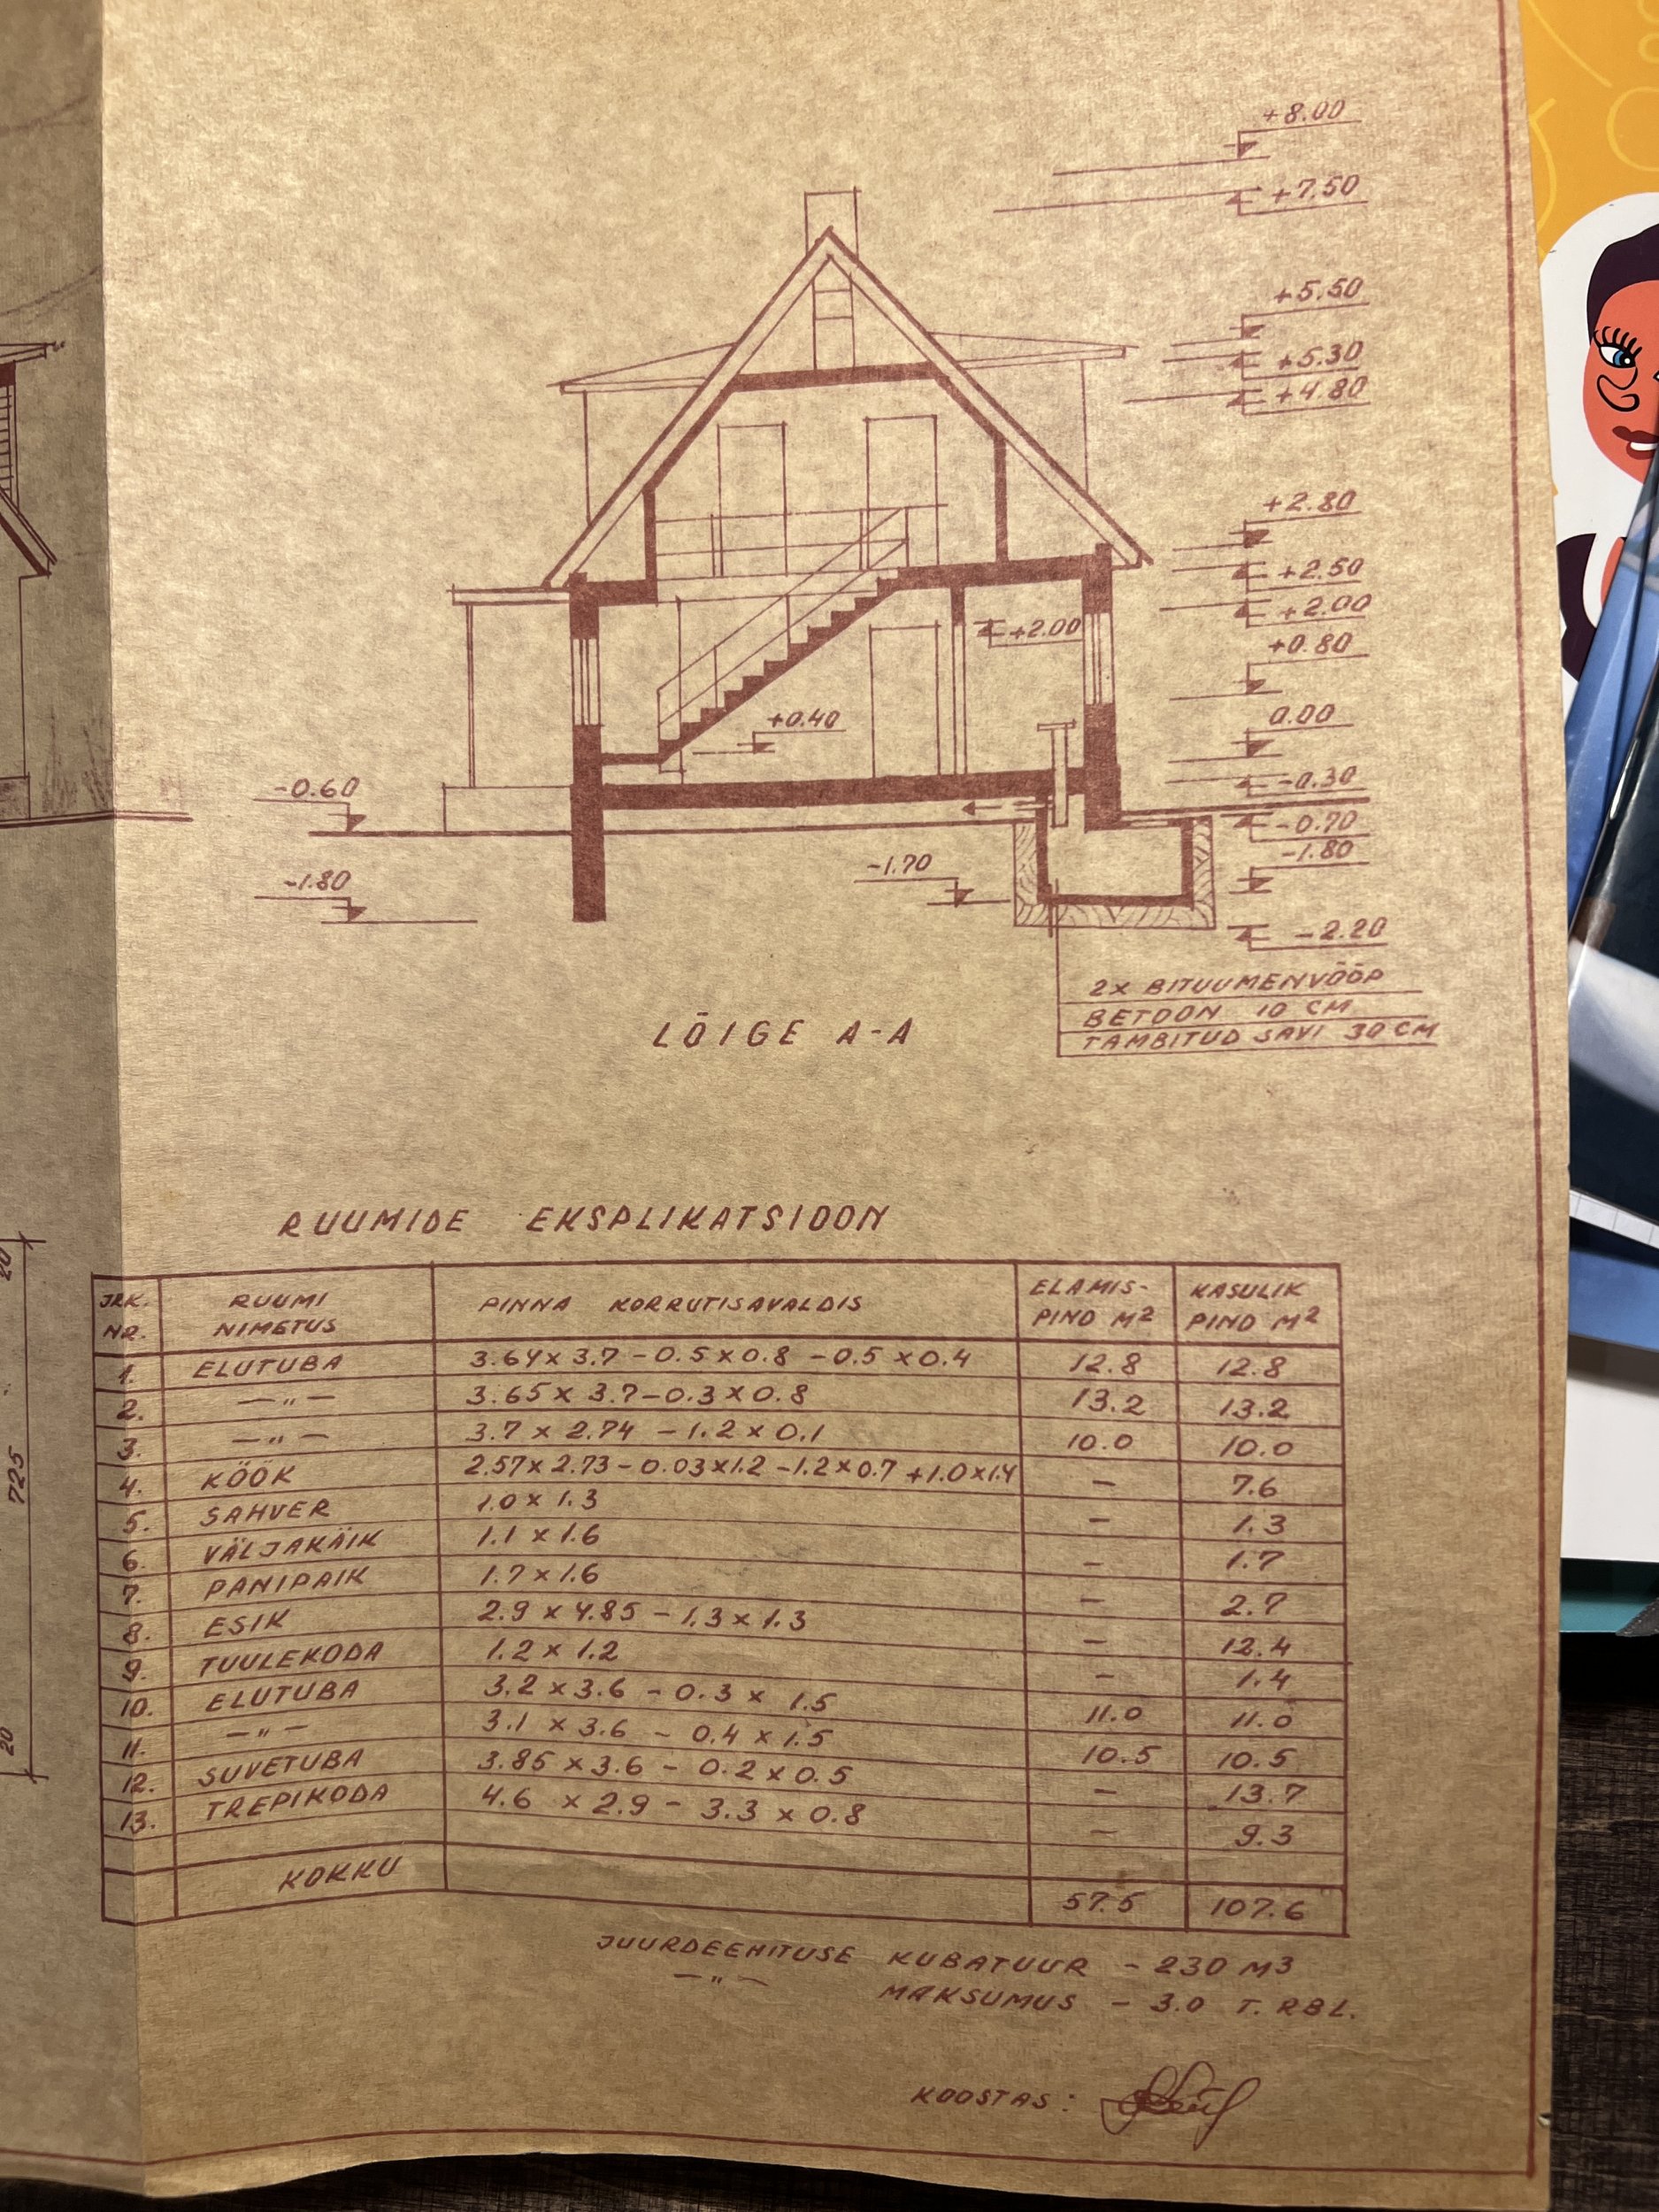 +8.00
+7.50
+5.50
+5.30
+4.80
+2.80
+2.50
+2.00
+2.00
+0.80
+0.40
0.00
-0.60
-0.30
-0.70
-1.80
-1.70
-1.80
-2.20
2X BITUUMENVÕÕP
BETOON 10 CM
TAMBITUD SAVI 30 CM
LÕIGE A-A
RUUMIDE EKSPLIKATSIOON
JRK. NR. RUUMI NIMETUS PINNA KORRUTISAVALDIS ELAMIS-PIND M² KASULIK PIND M²
1. ELUTUBA 3.64 x 3.7 - 0.5 x 0.8 - 0.5 x 0.4 12.8 12.8
2. —"— 3.65 x 3.7 - 0.3 x 0.8 13.2 13.2
3. —"— 3.7 x 2.74 - 1.2 x 0.1 10.0 10.0
4. KÖÖK 2.57 x 2.73 - 0.03 x 1.2 - 1.2 x 0.7 + 1.0 x 1.4 — 7.6
5. SAHVER 1.0 x 1.3 — 1.3
6. VÄLJAKÄIK 1.1 x 1.6 — 1.7
7. PANIPAIK 1.7 x 1.6 — 2.7
8. ESIK 2.9 x 4.85 - 1.3 x 1.3 — 12.4
9. TUULEKODA 1.2 x 1.2 — 1.4
10. ELUTUBA 3.2 x 3.6 - 0.3 x 1.5 11.0 11.0
11. —"— 3.1 x 3.6 - 0.4 x 1.5 10.5 10.5
12. SUVETUBA 3.85 x 3.6 - 0.2 x 0.5 — 13.7
13. TREPIKODA 4.6 x 2.9 - 3.3 x 0.8 — 9.3
KOKKU 57.5 107.6
JUURDEEHITUSE KUBATUUR - 230 M3
—"— MAKSUMUS - 3.0 T. RBL.
KOOSTAS:
20
725
20